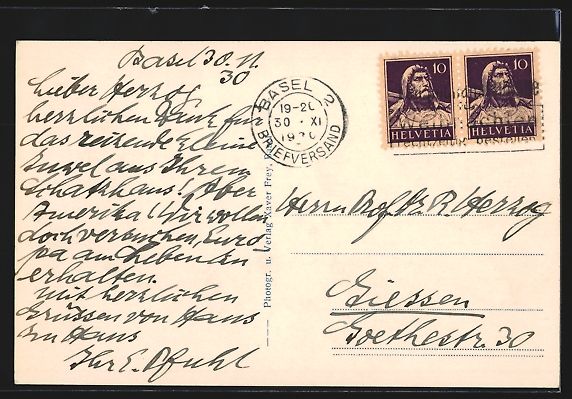 Basel 30. 11.
30
Lieber Herzog,
herzlichen Dank für
das reizende kleine
Juwel aus Ihrem
Schatzhaus! Aber
Amerika!! Wir wollen
doch versuchen, Euro
pa am Leben zu
erhalten.
Mit herzlichen
Grüssen von Haus
zu Haus
Ihr E. Pfuhl
Photogr. u. Verlag Xaver Frey,
BASEL 2
19-20
30 · XI
1930
BRIEFVERSAND
10
HELVETIA
10
HELVETIA
rechtzeitig bestellen
Herrn Prof. Dr. R. Herzog
Giessen
Goethestr. 30